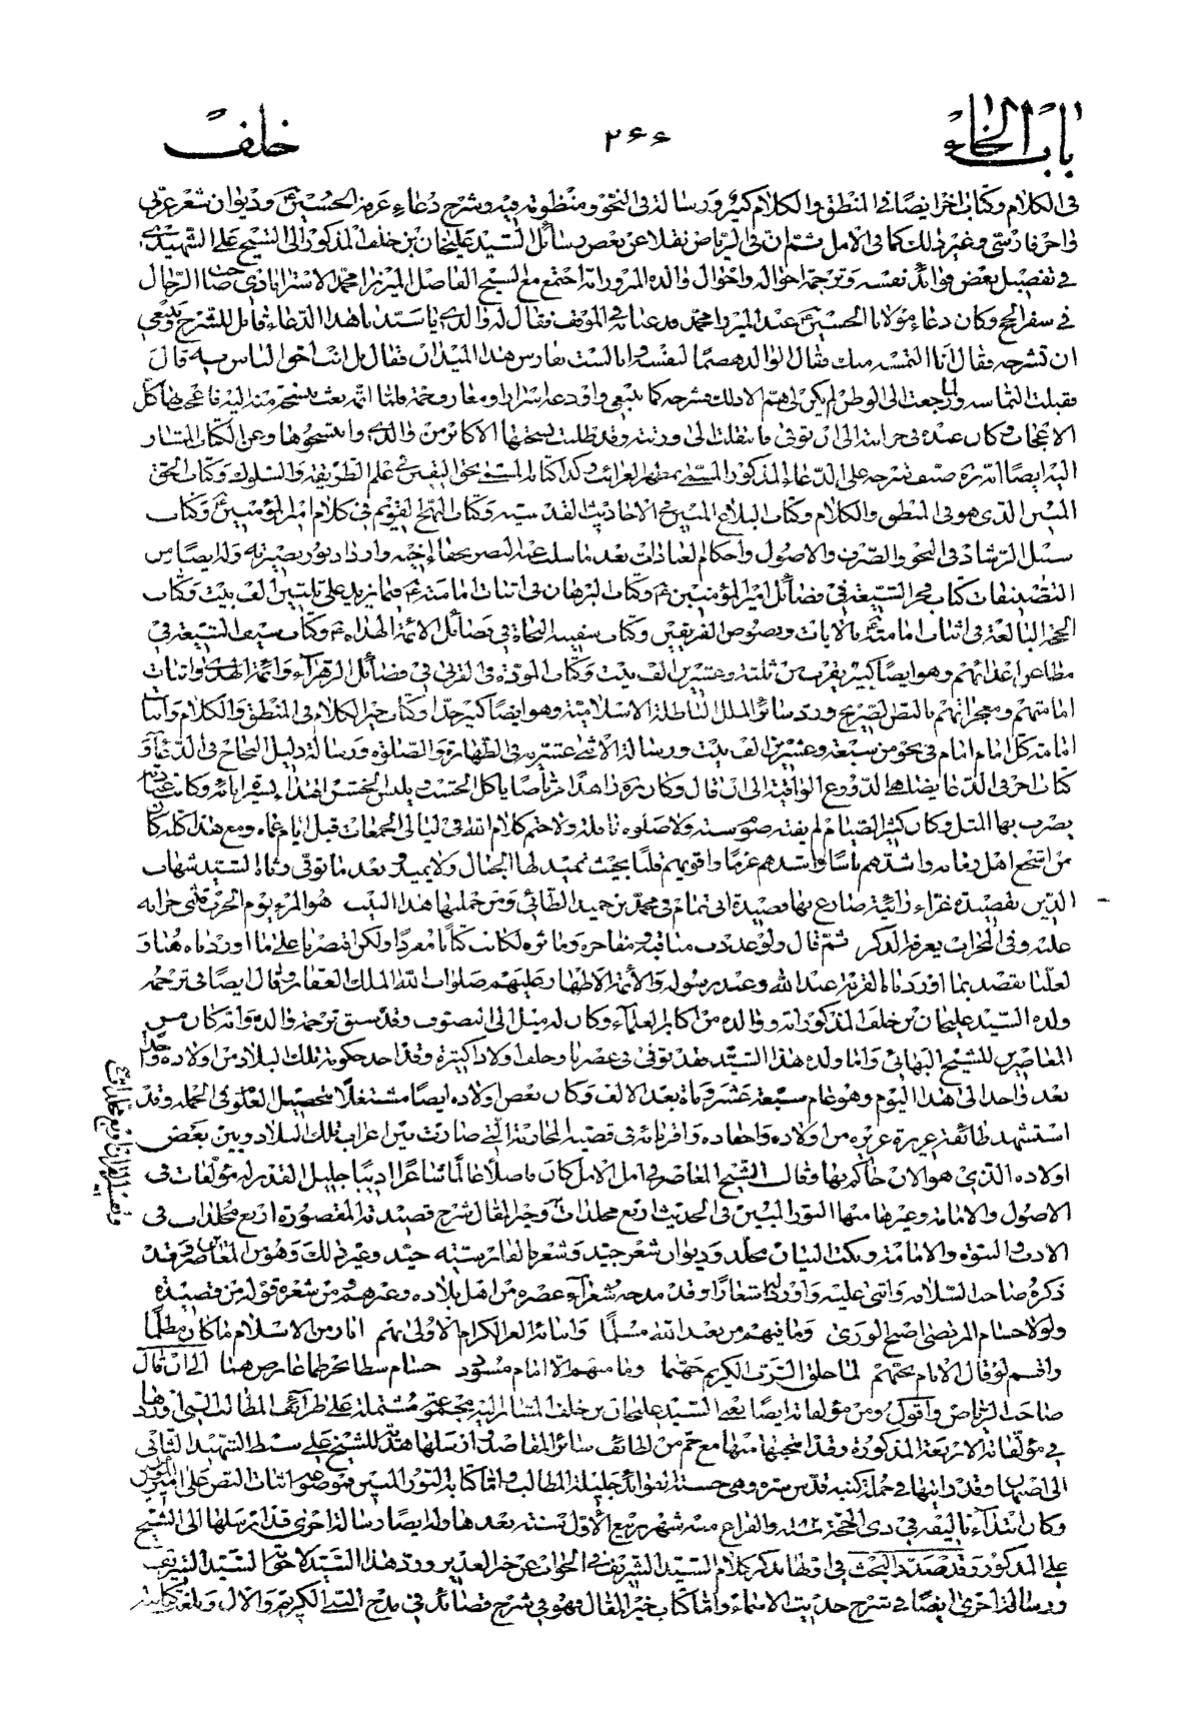 باب الخاء
٢٦٦
خلف
فى الكلام وكتاب آخر ايضا فى المنطق والكلام كبير ورسالة فى النحو ومنظومة فيه وشرح دعاء عرفة الحسين ع وديوان شعر عربى
وآخر فارسى وغير ذلك كما فى الامل ثم ان فى الرياض نقلا عن بعض رسائل السيد عليخان بن خلف المذكور الى الشيخ على الشهيدى
فى تفصيل بعض فوائد نفسه وترجمة احواله واحوال والده المبرور انه اجتمع مع الشيخ الفاضل الميرزا محمد الاسترابادى صاحب الرجال
فى سفر الحج وكان دعاء مولانا الحسين ع عند الميرزا محمد فدعا به فى الموقف فقال له والدى يا سيدنا هذا الدعاء قابل للشرح وينبغى
ان تشرحه فقال انا التمسه منك فقال الوالد هضما لنفسه انا لست بفارس هذا الميدان فقال بل انت اخو الناس به قال
فقبلت التماسه ولما رجعت الى الوطن لم يكن لى هم الا ذلك فشرحه كما ينبغى واودعه اسرارا ومعارف جمة فلما اتمه بعث بنسخة منه اليه فاعجب بها كل
الاعجاب وكان عنده فى خزانته الى ان توفى فانتقلت الى ورثته وقد طلب نسختها الاكابر من والدى وانتسخوها وعن الكتاب المشار
اليه ايضا انه ره صنف شرحه على الدعاء المذكور المسمى بمظهر الغرائب وكذا كتابه المسمى بحق اليقين فى علم الطريقة والسلوك وكتاب الحق
المبين الذى هو فى المنطق والكلام وكتاب البلاغ المبين فى الاحاديث القدسية وكتاب النهج القويم فى كلام امير المؤمنين ع وكتاب
سبيل الرشاد فى النحو والصرف والاصول واحكام العبادات بعد ما سلب عنه البصر بجفاء اخيه وازداد نور بصيرته وله ايضا من
التصنيفات كتاب فخر الشيعة فى فضائل امير المؤمنين ع وكتاب البرهان فى اثبات امامته ع فيما يزيد على ثلثين الف بيت وكتاب
الحجة البالغة فى اثبات امامته ع بالايات ونصوص الفريقين وكتاب سفينة النجاة فى فضائل الائمة الهداة ع وكتاب سيف الشيعة فى
مطاعن اعدائهم وهو ايضا كبير يقرب من ثلثة وعشرين الف بيت وكتاب المودة فى القربى فى فضائل الزهراء وائمة الهدى واثبات
امامتهم ومعجزاتهم بالنص الصريح ورد سائر الملل الباطلة الاسلامية وهو ايضا كبير جدا وكتاب خير الكلام فى المنطق والكلام واثبات
امامة كل امام امام فى نحو من سبعة وعشرين الف بيت ورسالة الاثنى عشرية فى الطهارة والصلوة ورسالة دليل النجاح فى الدعاء و
كتاب آخر فى الدعا ايضا هى الدروع الواقية الى ان قال وكان ره زاهدا مرتاضا ياكل الجشب ويلبس الخشن اقتداء بسيرة ابائه وكانت عبادته
يضرب بها المثل وكان كثير الصيام لم يفته صوم سنة ولا صلوة نافلة ولا ختم كلام الله فى ليالى الجمعات قبل ايام عماه ومع هذا كله كان
من اشجع اهل زمانه واشدهم باسا واشدهم عزما واقويهم قلبا بحيث تميد لها الجبال ولا يميد وبعد ما توفى رثاه السيد شهاب
الدين بقصيدة غراء رائية ضارع بها قصيدة ابى تمام فى محمد بن حميد الطائى ومن جملتها هذا البيت هو المرء يوم الحرب تثنى حرابه
عليه وفى المحراب يعرفه الذكر ثم قال ولو عددت مناقبه ومفاخره ومآثره لكانت كتابا مفردا ولكن اقتصرنا على ما اوردناه هنا و
لعلنا نقصد بما اوردنا القربة عند الله وعند رسوله والأئمة الاطهار عليهم صلوات الله الملك الغفار وقال ايضا فى ترجمة
ولده السيد عليخان بن خلف المذكور انه ووالده من اكابر العلماء وكان له ميل الى التصوف وقد سبق ترجمة والده وانه كان من
المعاصرين للشيخ البهائى واما ولده هذا السيد فقد توفى فى عصرنا وخلف اولادا كثيرة وقد اخذ حكومة تلك البلاد من اولاده واحد
بعد واحد الى هذا اليوم وهو عام سبعة عشر ومأة بعد الالف وكان بعض اولاده ايضا مشتغلا بتحصيل العلوم فى الجملة وقد
استشهد طائفة غزيرة عزيزة من اولاده واحفاده واقربائه فى قضية المحاربة التى صارت بين اعراب تلك البلاد وبين بعض
اولاده الذى هو الان حاكم بها وقال الشيخ المعاصر فى امل الامل كان فاضلا عالما شاعرا اديبا جليل القدر له مؤلفات فى
الاصول والامامة وغيرها منها النور المبين فى الحديث اربع مجلدات وخير المقال شرح قصيدته المقصورة اربع مجلدات فى
الادب والنبوة والامامة ونكت البيان مجلد وديوان شعر جيد وشعر بالفارسية جيد وغير ذلك وهو من المعاصرين قد
ذكره صاحب السلافة واثنى عليه واورد له اشعارا وقد مدحه شعراء عصره من اهل بلاده وغيرهم ومن شعره قوله من قصيدة
ولولا حسام المرتضى اصبح الورى وما فيهم من يعبد الله مسلما وابنائه الغر الكرام الاولى بهم انار من الاسلام ما كان مظلما
واقسم لو قال الانام بحبهم لما خلق الرب الكريم جهنما وما منهم الا امام مسود حسام سطا بحر طما عارض هما الى ان قال
صاحب الرياض واقول ومن مؤلفاته ايضا يعنى السيد عليخان بن خلف المشار اليه مجموعة مشتملة على طرائف المطالب التى اوردها
فى مؤلفاته الاربعة المذكورة وقد انتخبها منها مع ضم من لطائف سائر المقاصد وارسلها هدية للشيخ على سبط الشهيد الثانى
الى اصبهان وقد رايتها فى جملة كتبه قدس سره وهى حسنة الفوائد جليلة المطالب واما كتابه النور المبين فموضوعه اثبات النص على امير المؤمنين
وكان ابتداء تاليفه فى ذى الحجة سنة ١٠٨٢ والفراغ منه شهر ربيع الأول سنة بعدها وله ايضا رسالة اخرى قد ارسلها الى الشيخ
على المذكور وقد صدد البحث فى اولها بذكر كلام السيد الشريف فى الجواب عن خبر الغدير ورد هذا السيد لاجوبة السيد الشريف
ورسالة اخرى ايضا فى شرح حديث الاسماء واما كتاب خير المقال فهو فى شرح قصائد فى مدح النبى الكريم والآل وبلغ كتابته
وتفسير القرآن اربع مجلدات